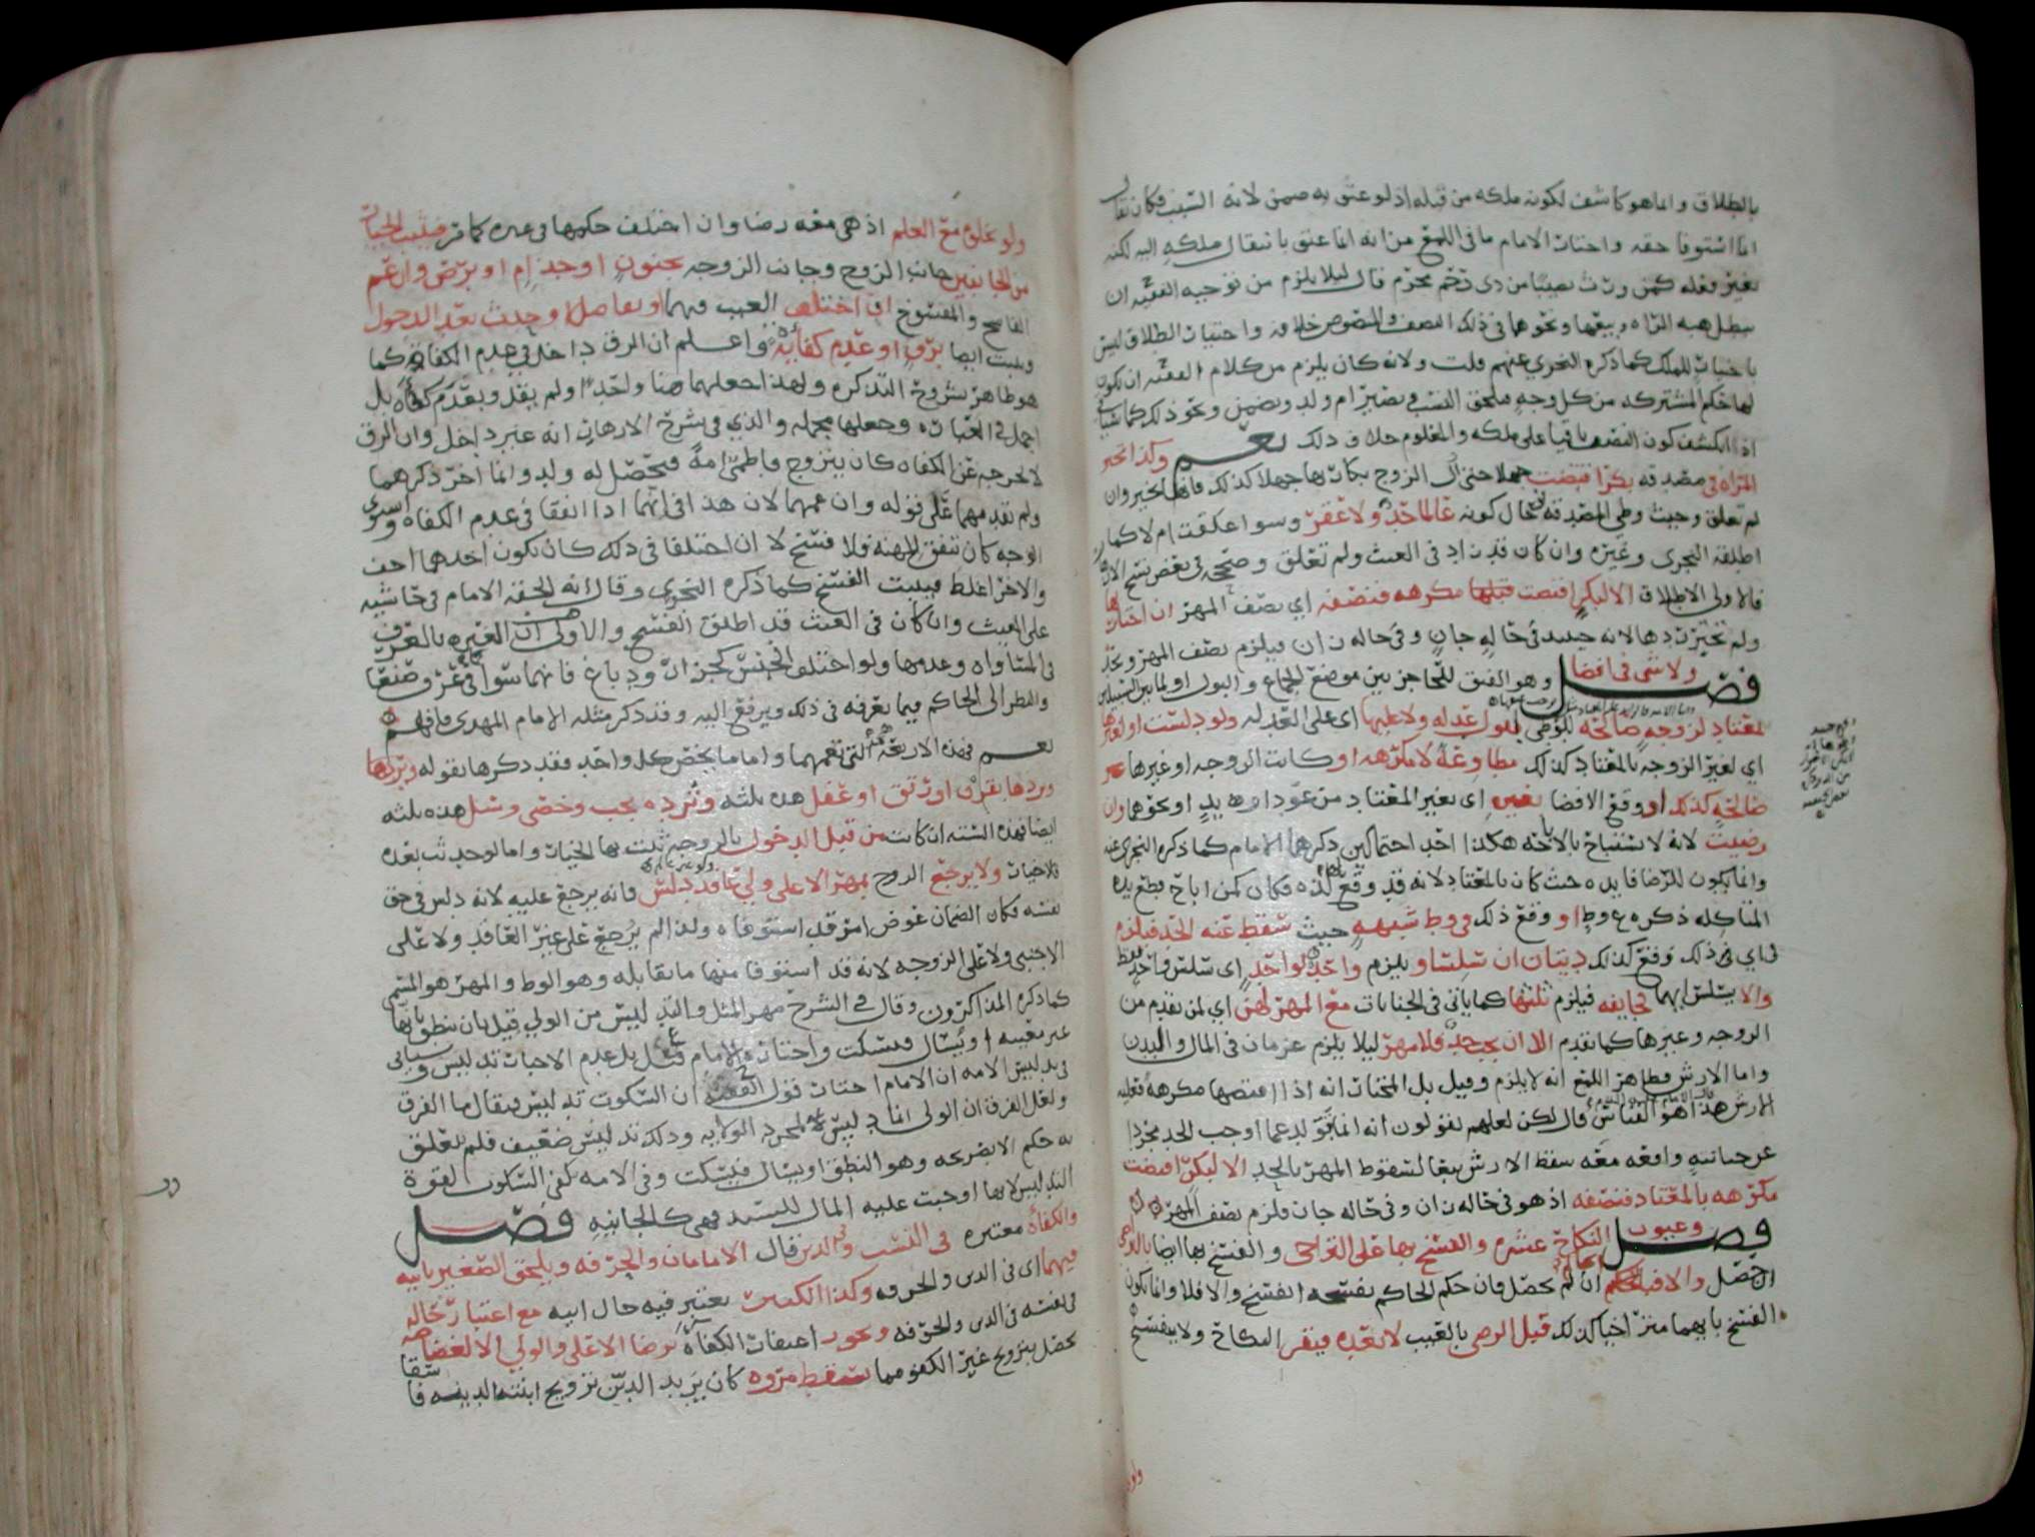 بالطلاق وانما هو كاشف لكونه ملكه من قبله اذ لو عتق به ضمن لانه السبب فكان يقال
انما استوفا حقه واختار الامام ما في اللمع من انه انما عتق بانتقال ملكه اليه لكنه
بغير فعله كمن ورث نصيبا من ذي رحم محرم قال ليلا يلزم من توجيه الفقيه ان
يبطل هبه المراه وبيعها ونحوهما في ذلك النصف والمنصوص خلافه واختيار الطلاق ليس
باختيار للملك كما ذكره النجري عنهم قلت ولانه كان يلزم من كلام الفقيه ان يكون
لها حكم المشتركه من كل وجه فلحق النسب وتصير ام ولد ويضمن ونحو ذلك كما سياتي
اذ انكشف كون النصف باقيا على ملكه والمعلوم خلاف ذلك نعم وكذا تخير
المراه في مصدقه بكرا افتضت حملا حتى الزوج بكارتها جهلا كذلك فانها تخير وان
لم تعلق وحيث وطي المصدقه في حال كونه عالما حد ولا عقر وسوا علقت ام لا كما
اطلقه النجري وغيره وان كان قد زاد في الغيث ولم تعلق وصححه في بعض نسخ الازهار
فالاولى الاطلاق الا البكر افتضت قبلها مكرهه فنصفه اي نصف المهر ان اختارها
ولم تخير ردها لانه حينيد في حاله جان وفي حاله زان فيلزم نصف المهر ويحد
فصل ولا شي في افضا وهو الفتق للحاجز بين موضع الجماع والبول او لما بين السبيلين
لمعتاد لزوجه صالحه للوطي لا عليه ولا عليها اي على العدله ولو دلست او لغيرها
اي لغير الزوجه بالمعتاد كذلك مطاوعة لا مكرهه او كانت الزوجه او غيرها غير
صالحه كذلك او وقع الافضا بغيره اي بغير المعتاد من عود او يد او نحوهما وان
رضيت لانه لا يستباح بالاباحه هكذا احد احتمالين ذكرهما الامام كما ذكره النجري عنه
وانما يكون للرضا فايده حيث كان بالمعتاد لانه قد وقع لذه فكان كمن اباح قطع يده
المتاكله ذكره ع وط او وقع ذلك في وطي شبهه حيث سقط عنه الحد فيلزم
في اي ذلك وقع كذلك ديتان ان سلسا ويلزم واحده لواحد اي سلس واحد فقط
والا يسلس ايهما لجايفه فيلزم ثلثها كما ياتي في الجنايات مع المهر لهن اي لمن تقدم من
الزوجه وغيرها كما تقدم الا ان يجب حد فلا مهر ليلا يلزم غرمان في المال والبدن
واما الارش فظاهر اللمع انه لا يلزم وقيل بل المختار انه اذا افتضها مكرهه فعليه
الارش هذا هو القياس قال لكن لعلهم يقولون انه انما تولد عما اوجب الحد مجردا
عن جنايته واقعه معه سقط الارش تبعا لسقوط المهر بالحد الا لبكر افتضت
مكرهه بالمعتاد فنصفه اذ هو في حاله زان وفي حاله جان فلزم نصف المهر
فصل وعيوب النكاح عشره والفسخ بها على التراخي والفسخ بها ايضا بالتراضي
ان حصل والا فبالحكم ان لم يحصل فان حكم الحاكم بفسخه انفسخ والا فلا وانما يكون
الفسخ بايهما منز اخيا كذلك قبل الرضى بالعيب لا بعده فيتقرر النكاح ولا ينفسخ
ولو
ولو بخلوه مع العلم اذ هي معه رضا وان اختلف حكمها في غيره كما مر فيثبت الخيار
من الجانبين جانب الزوج وجانب الزوجه بجنون او جذام او برص وان عم
الفاسخ والمفسوخ او اختلف العيب فيهما او تفاصلا وحدث بعد الدخول
ويثبت ايضا برق او عدم كفاءه واعلم ان الرق داخل في عدم الكفاءه كما
هو ظاهر شروح التذكره ولهذا جعلهما هنا واحدا ولم يقل وبعدم كفاءه بل
اجمل في العباره وجعلها مجمله والذي في شرح الازهار انه غير داخل وان الرق
لا يخرجه عن الكفاه كان يتزوج فاطمي امة فيحصل له ولد وانما اخر ذكرهما
ولم يقدمهما على قوله وان عمهما لان هذا في انهما اذا اتفقا في عدم الكفاه واستوى
الوجه كان تتفق المهنه فلا فسخ لا ان اختلفا في ذلك كان يكون احدهما اخف
والاخر اغلظ فيثبت الفسخ كما ذكره النجري وقال انه الحقه الامام في حاشيه
على الغيث وان كان في الغيث قد اطلق الفسخ والاولى ان العبره بالعرف
في المساواه وعدمها ولو اختلف الجنس كجزار ودباغ فانهما سوا في عرف صنعا
والنظر الى الحاكم فيما يعرفه في ذلك ويرفع اليه وقد ذكر مثله الامام المهدي فافهم
نعم فهذه الاربعه التي تعمهما واما ما يخص كل واحد فقد ذكرها بقوله ويردها
وردها بقرن او رتق او عفل هذه ثلثه وترده بجب وخصي وسل هذه ثلثه
ايضا فهذه السته ان كانت من قبل الدخول بالزوجه ثبت بها الخيار واما لو حدثت بعده
فلا خيار ولا يرجع الزوج بمهر الا على ولي عاقد دلس فانه يرجع عليه لانه دلس في حق
نفسه فكان الضمان عوض امر قد استوفاه ولذا لم يرجع على غير العاقد ولا على
الاجنبي ولا على الزوجه لانه قد استوفا منها ما يقابله وهو الوط والمهر هو المسمى
كما ذكره المذاكرون وقال في الشرح مهر المثل والتدليس من الولي قيل بان ينطق بانها
غير معيبه او يسال فيسكت واختاره الامام قيل بل عدم الاخبار تدليس وسياتي
في تدليس الامه ان الامام اختار قول الفقيه ان السكوت تدليس فيقال ما الفرق
ولعل الفرق ان الولي انما دلس لا لمجرد الولايه وذلك تدليس ضعيف فلم يتعلق
به حكم الا بصريحه وهو النطق او يسال فيسكت وفي الامه كفى السكوت لقوة
التدليس لانها اوجبت عليه المال للسيد فهي كالجانيه فصل
والكفاه معتبره في النسب وفي الدين قال الامامان والحرفه ويلحق الصغير بابيه
فيهما اي في الدين والحرفه وكذا الكبير يعتبر فيه حال ابيه مع اعتبار حاله
في نفسه في الدين والحرفه ويجوز اغتفار الكفاه برضا الاعلى والولي الا لغضاضه
تحصل بتزويج غير الكفو مما يسقط مروه كان يريد الدين تزويج ابنته الدينه فا
سقا